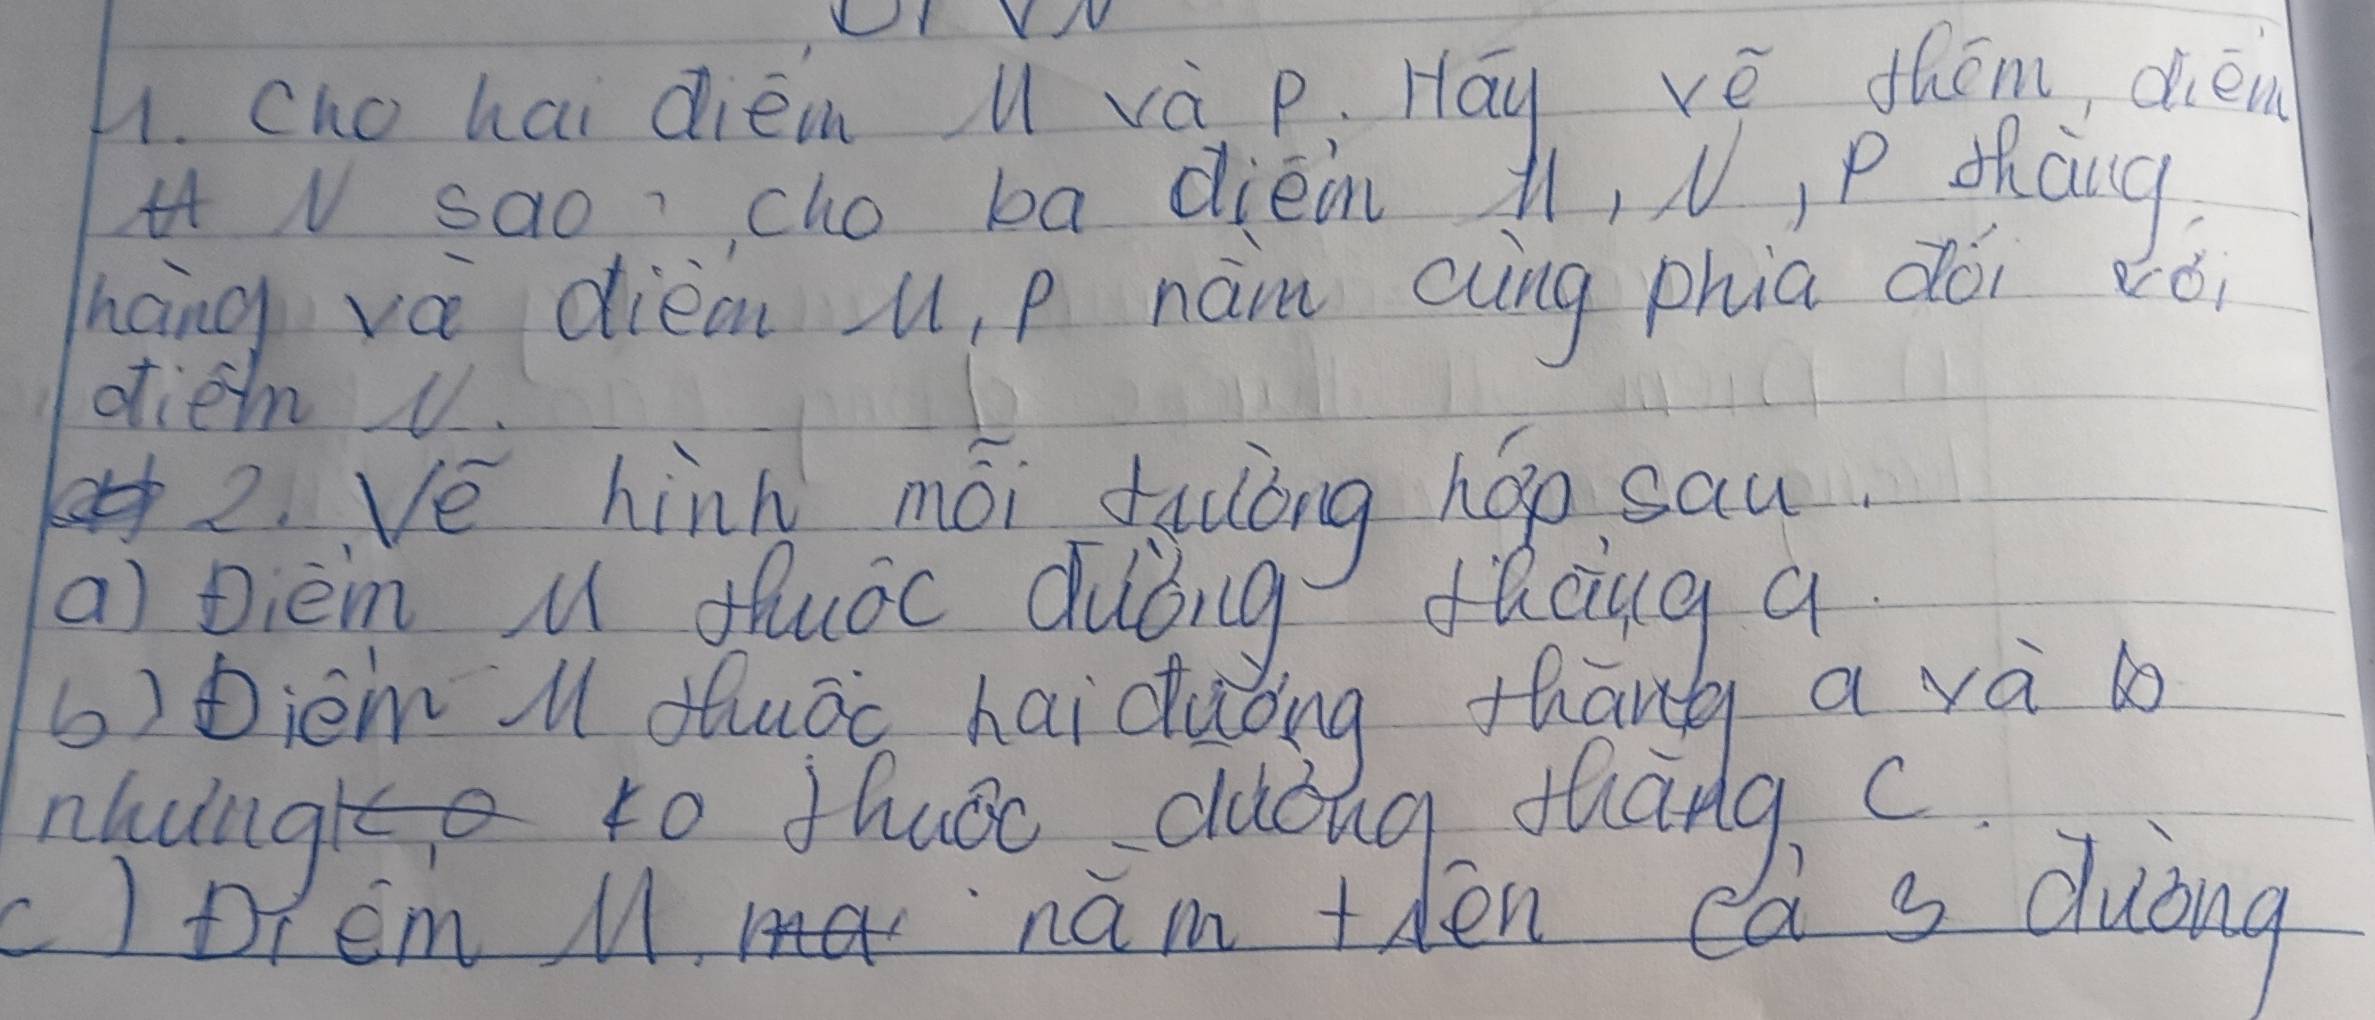 1. Cho hai điểm M và P. Hãy vẽ thêm điểm
N sao cho ba điểm M, N, P thẳng
hàng và điểm M, P nằm cùng phía đối với
điểm N.
2. Vẽ hình mỗi trường hợp sau.
a) Điểm M thuộc đường thẳng a.
b) Điểm M thuộc hai đường thẳng a và b
nhưng ko thuộc đường thẳng c.
c) Điểm M nằm trên cả 3 đường